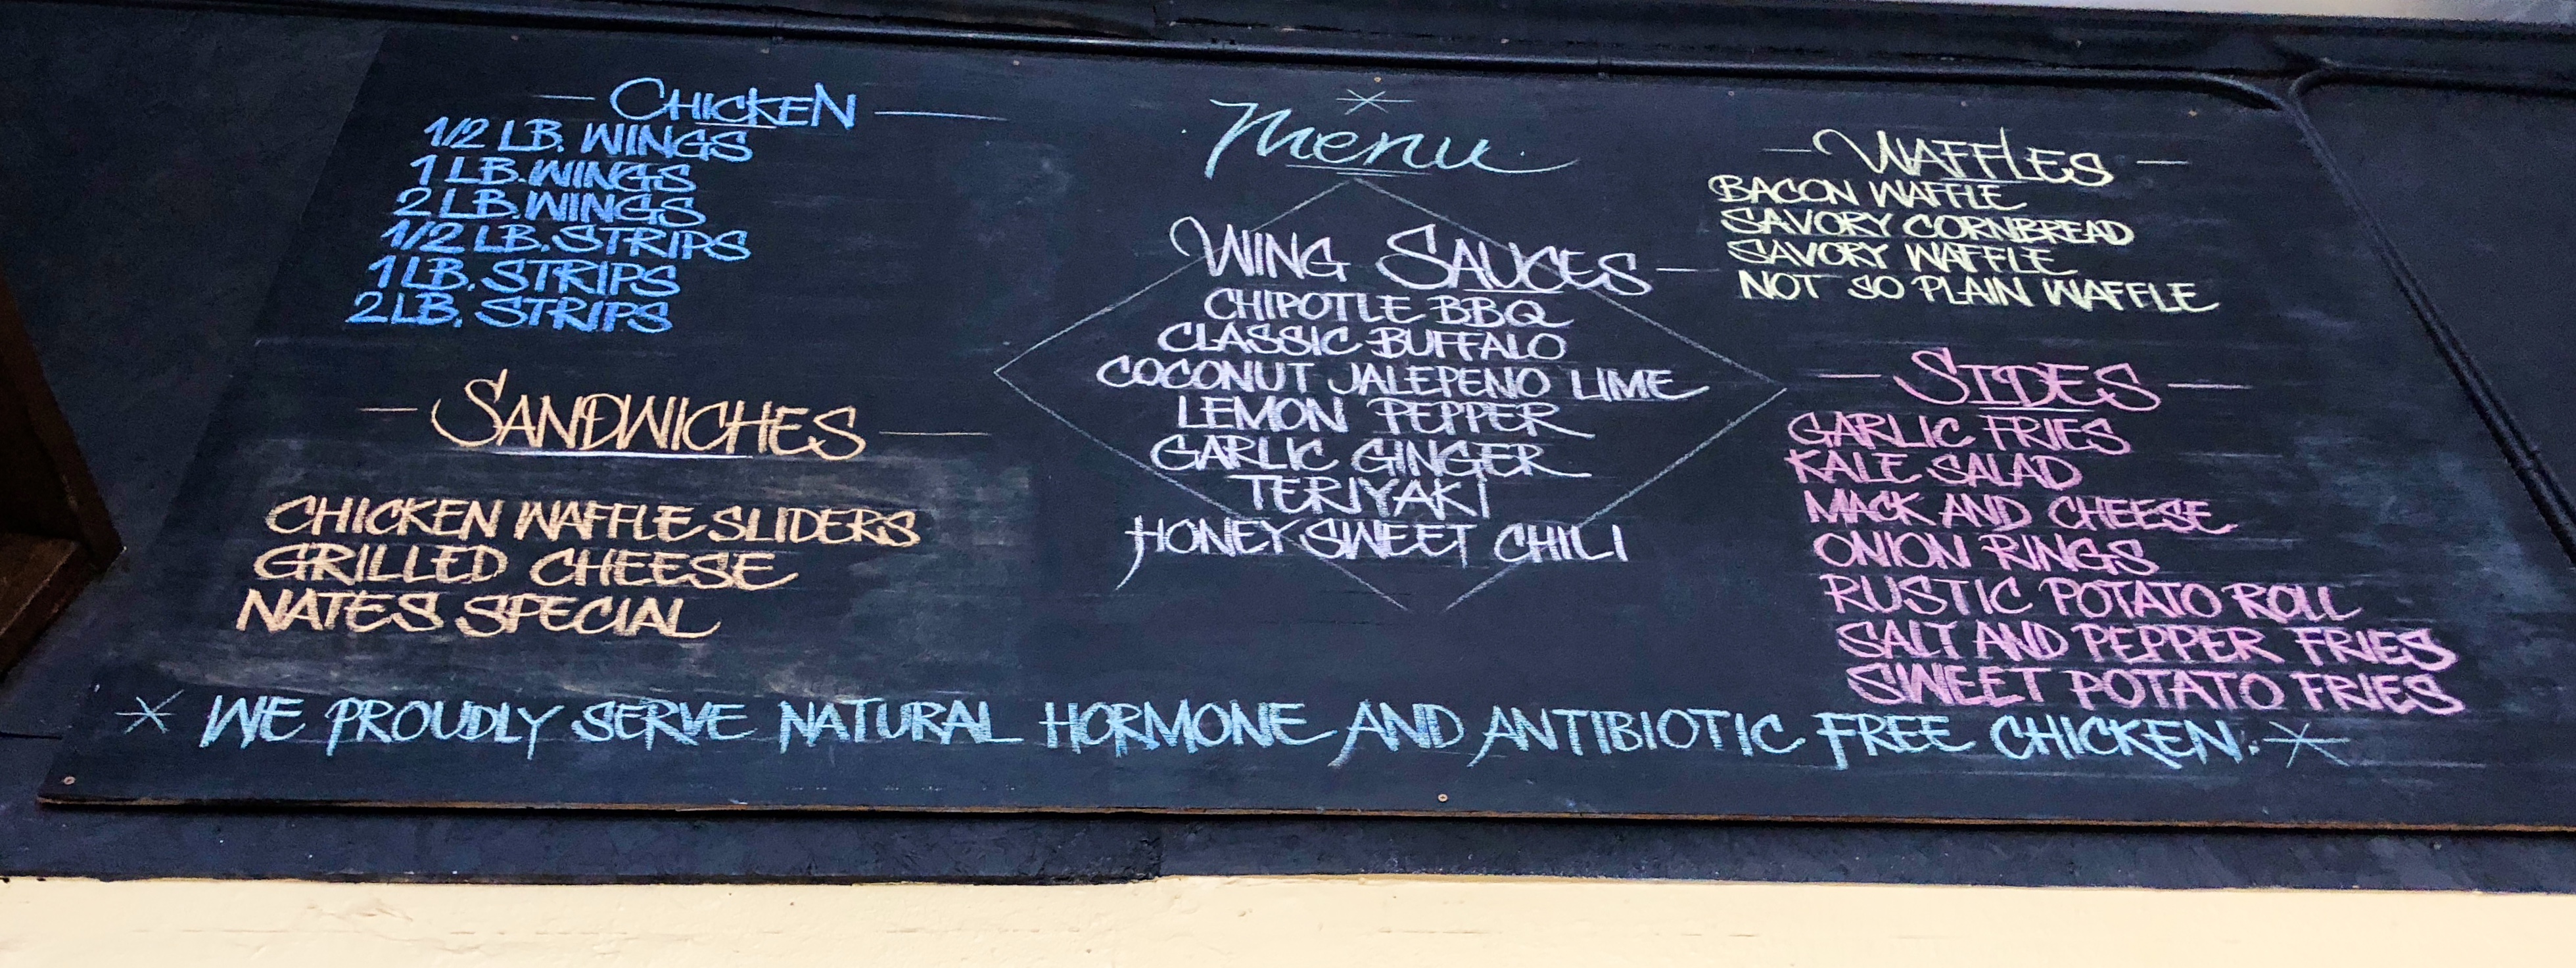 Menu
CHICKEN
1/2 LB. WINGS
1 LB. WINGS
2 LB. WINGS
1/2 LB. STRIPS
1 LB. STRIPS
2 LB. STRIPS
SANDWICHES
CHICKEN WAFFLE SLIDERS
GRILLED CHEESE
NATES SPECIAL
WING SAUCES
CHIPOTLE BBQ
CLASSIC BUFFALO
COCONUT JALEPENO LIME
LEMON PEPPER
GARLIC GINGER
TERIYAKI
HONEY SWEET CHILI
WAFFLES
BACON WAFFLE
SAVORY CORNBREAD
SAVORY WAFFLE
NOT SO PLAIN WAFFLE
SIDES
GARLIC FRIES
KALE SALAD
MACK AND CHEESE
ONION RINGS
RUSTIC POTATO ROLL
SALT AND PEPPER FRIES
SWEET POTATO FRIES
* WE PROUDLY SERVE NATURAL HORMONE AND ANTIBIOTIC FREE CHICKEN. *